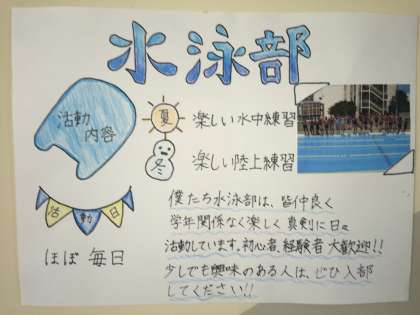 水泳部
活動
内容
夏 楽しい水中練習
冬 楽しい陸上練習
活動日
ほぼ毎日
僕たち水泳部は、皆仲良く
学年関係なく楽しく真剣に日々
活動しています。初心者、経験者大歓迎!!
少しでも興味のある人は、ぜひ入部
してください!!